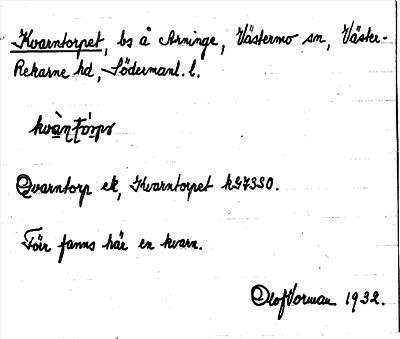 Kvarntorpet, bs å Arninge, Västermo sn, Väster-
Rekarne hd, Södermanl. l.
Qvarntorp ek, Kvarntorpet hG7330.
Förr fanns här en kvarn.
Olof Vorman 1932.